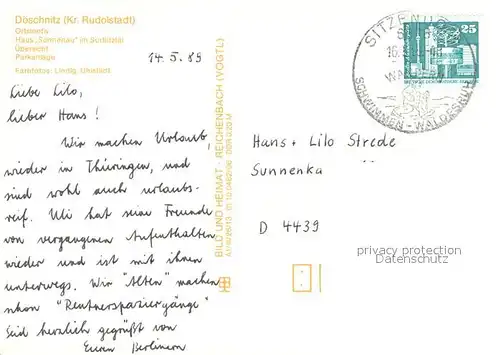 Döschnitz (Kr. Rudolstadt)
Ortsmotiv
Haus "Sonneneck" im Sorbitztal
Übersicht
Parkanlage
14.5.89
Liebe Lilo,
lieber Hans!
Wir machen Urlaub,
wieder in Thüringen, und
sind wohl auch urlaubs-
reif. Uli hat seine Freunde
von vergangenen Aufenthalten
wieder und ist mit ihnen
unterwegs. Wir "Alten" machen
schon "Rentnerspaziergänge"
Seid herzlich gegrüßt von
Euren Berlinern
BILD UND HEIMAT · REICHENBACH (VOGTL)
SITZENDORF
25
SCHWIMMEN - WALDESRUH
Hans + Lilo Strede
Sunnenka
D 4439
privacy protection
Datenschutz